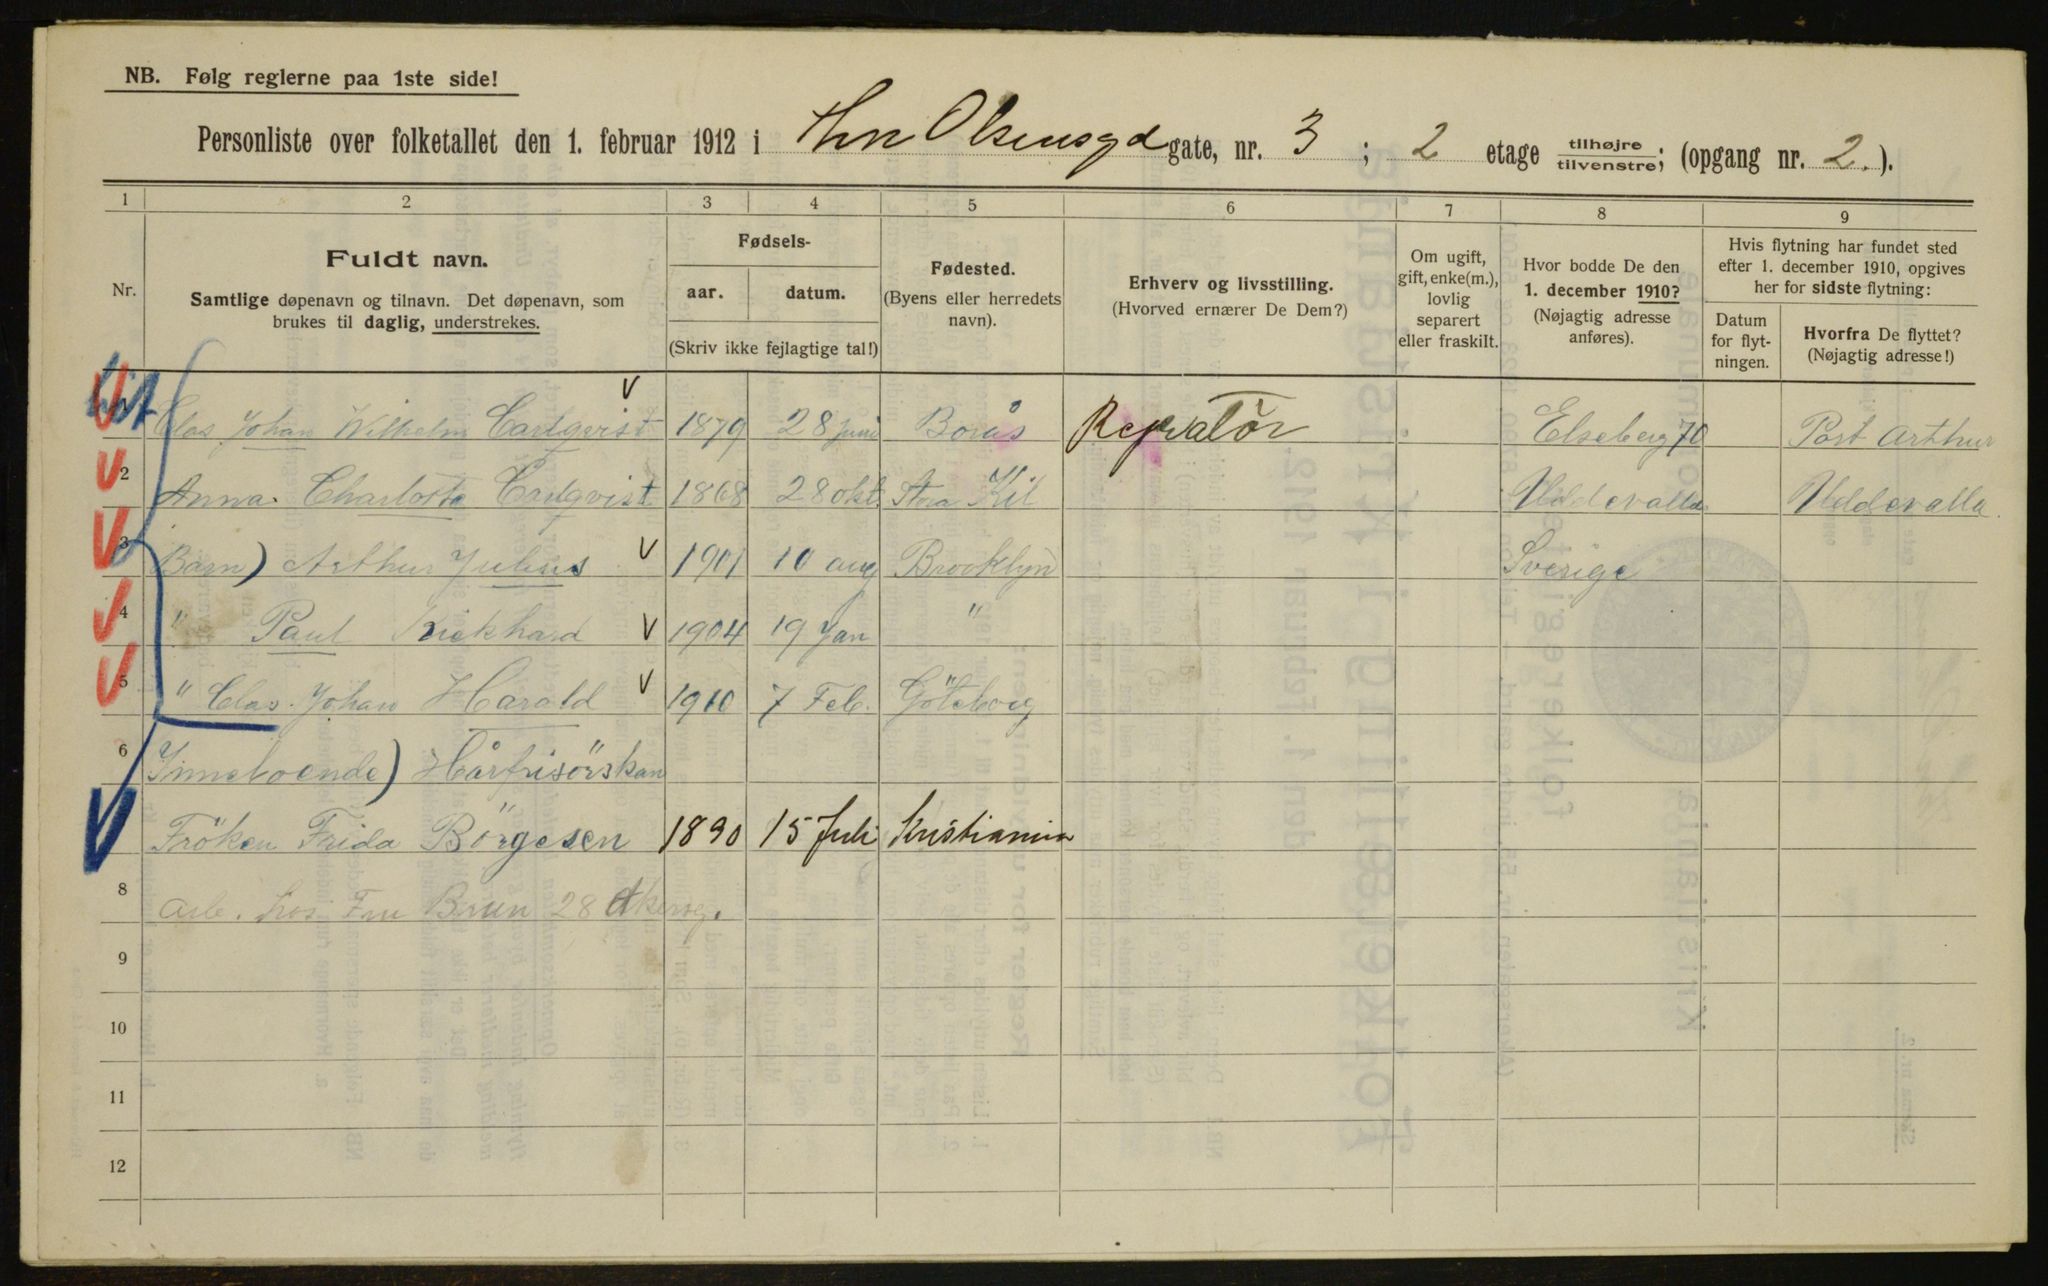 NB. Følg reglerne paa 1ste side!
Personliste over folketallet den 1. februar 1912 i Olsensgd gate, nr. 3 ; 2 etage tilhøjre tilvenstre; (opgang nr. 2.).
1 2 3 4 5 6 7 8 9
Nr.
Fuldt navn.
Samtlige døpenavn og tilnavn. Det døpenavn, som
brukes til daglig, understrekes.
Fødsels-
aar. datum.
(Skriv ikke fejlagtige tal!)
Fødested.
(Byens eller herredets
navn).
Erhverv og livsstilling.
(Hvorved ernærer De Dem?)
Om ugift,
gift, enke(m.),
lovlig
separert
eller fraskilt.
Hvor bodde De den
1. december 1910?
(Nøjagtig adresse
anføres).
Hvis flytning har fundet sted
efter 1. december 1910, opgives
her for sidste flytning:
Datum
for flyt-
ningen.
Hvorfra De flyttet?
(Nøjagtig adresse!)
Clas Johan Wilhelm Carlqvist 1879 28 juni Borås Reparatör Elseberg 70 Port Arthur
2 Anna Charlotta Carlqvist 1868 28 okt. Stora Kil Uddevalla Uddevalla.
3 Barn) Arthur Julius 1901 10 aug Brooklyn Sverige
4 " Paul Rickhard 1904 19 Jan "
5 " Clas Johan Harald 1910 7 Feb. Göteborg
6 Inneboende) Hårfrisörskan
Fröken Frida Börgesen 1890 15 Juli Kristiania
8 Arb. hos Fru Brun 28 Akersg.
9
10
11
12